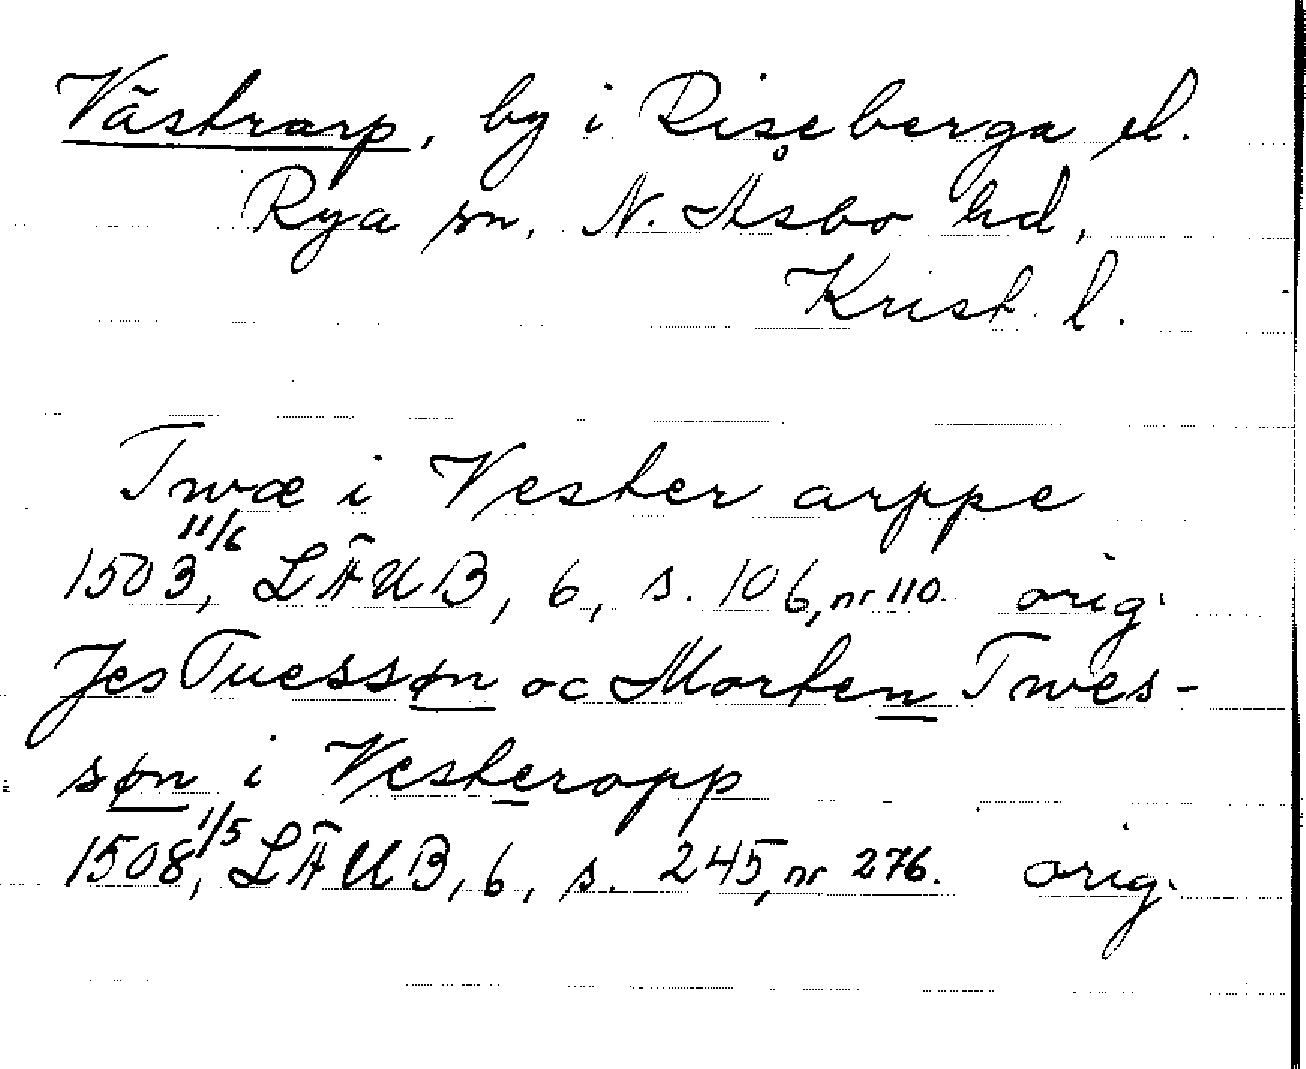 Västrarp, by i Riseberga el.
Rya sn, N. Åsbo hd,
Krist. l.
Twæ i Vester arppe
1503 11/6, LÄUB, 6, s. 106, nr 110. orig.
Jes Tuessøn oc Morten Twes-
søn i Vesteropp
1508 1/5, LÄUB, 6, s. 245, nr 276. orig.